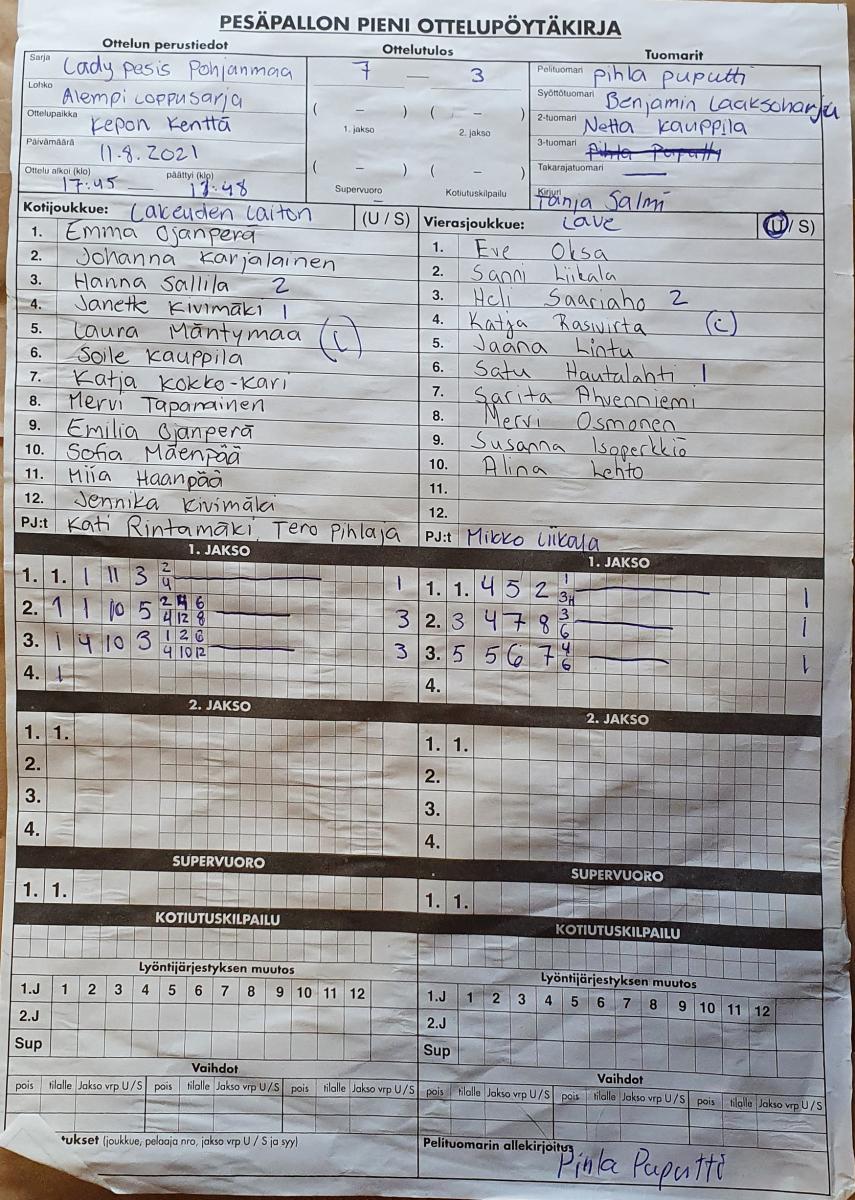 PESÄPALLON PIENI OTTELUPÖYTÄKIRJA
Ottelun perustiedot Ottelutulos Tuomarit
Sarja Lady pesis Pohjanmaa
Lohko Alempi Loppusarja
Ottelupaikka Kepon Kenttä
Päivämäärä 11.8.2021
Ottelu alkoi (klo) päättyi (klo)
17.45 — 18.48
7 — 3
( – ) ( – )
1. jakso 2. jakso
( – ) ( – )
Supervuoro Kotiutuskilpailu
–
Pelituomari pihla puputti
Syöttötuomari Benjamin Laaksoharju
2-tuomari Netta Kauppila
3-tuomari Pihla Puputti
Takarajatuomari —
Kirjuri Tanja Salmi
Kotijoukkue: Lakeuden Laiton (U / S)
1. Emma Ojanperä
2. Johanna Karjalainen
3. Hanna Sallila 2
4. Janette Kivimäki 1
5. Laura Mäntymaa (C)
6. Soile Kauppila
7. Katja Kokko-Kari
8. Mervi Tapanainen
9. Emilia Ojanperä
10. Sofia Mäenpää
11. Miia Haanpää
12. Jennika Kivimäki
PJ:t Kati Rintamäki, Tero Pihlaja
Vierasjoukkue: Lave (U / S)
1. Eve Oksa
2. Sanni Liikala
3. Heli Saariaho 2
4. Katja Rasivirta (C)
5. Jaana Lintu
6. Satu Hautalahti 1
7. Sarita Ahvenniemi
8. Mervi Osmonen
9. Susanna Isoperkkiö
10. Alina Lehto
11.
12.
PJ:t Mikko Liikala
1. JAKSO
1. 1. 1 11 3 2 4 — 1
2. 1 1 10 5 2 4 6 4 12 8 — 3
3. 1 4 10 3 1 2 6 4 10 12 — 3
4. 1
1. JAKSO
1. 1. 4 5 2 1 3H — 1
2. 3 4 7 8 3 6 — 1
3. 5 5 6 7 4 6 — 1
4.
2. JAKSO
1. 1.
2.
3.
4.
2. JAKSO
1. 1.
2.
3.
4.
SUPERVUORO
1. 1.
SUPERVUORO
1. 1.
KOTIUTUSKILPAILU
KOTIUTUSKILPAILU
Lyöntijärjestyksen muutos
1.J 1 2 3 4 5 6 7 8 9 10 11 12
2.J
Sup
Lyöntijärjestyksen muutos
1.J 1 2 3 4 5 6 7 8 9 10 11 12
2.J
Sup
Vaihdot
pois tilalle Jakso vrp U / S pois tilalle Jakso vrp U / S pois tilalle Jakso vrp U / S
Vaihdot
pois tilalle Jakso vrp U / S pois tilalle Jakso vrp U / S pois tilalle Jakso vrp U / S
tukset (joukkue, pelaaja nro, jakso vrp U / S ja syy)
Pelituomarin allekirjoitus
Pihla Puputti